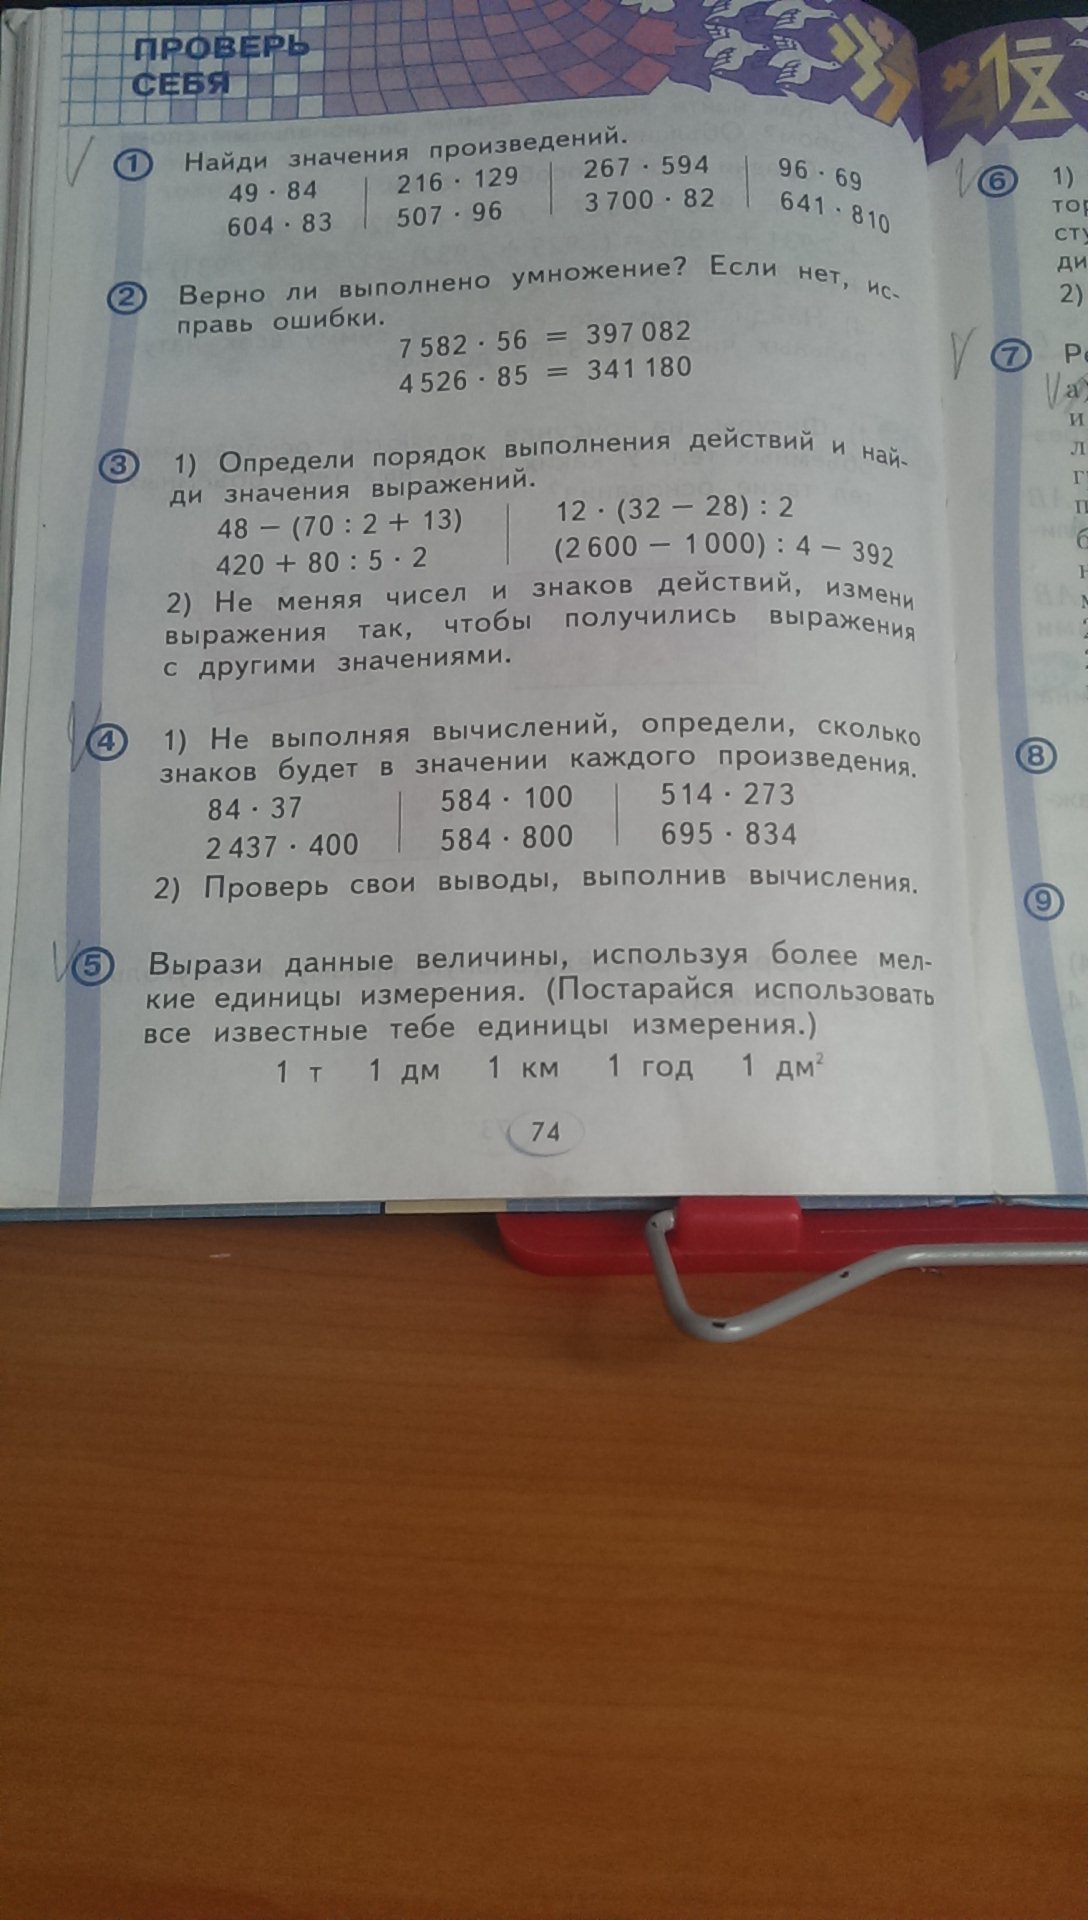 ПРОВЕРЬ
СЕБЯ
1 Найди значения произведений.
49 · 84 216 · 129 267 · 594 96 · 69
604 · 83 507 · 96 3 700 · 82 641 · 810
2 Верно ли выполнено умножение? Если нет, ис-
правь ошибки.
7 582 · 56 = 397 082
4 526 · 85 = 341 180
3 1) Определи порядок выполнения действий и най-
ди значения выражений.
48 − (70 : 2 + 13) 12 · (32 − 28) : 2
420 + 80 : 5 · 2 (2 600 − 1 000) : 4 − 392
2) Не меняя чисел и знаков действий, измени
выражения так, чтобы получились выражения
с другими значениями.
4 1) Не выполняя вычислений, определи, сколько
знаков будет в значении каждого произведения.
84 · 37 584 · 100 514 · 273
2 437 · 400 584 · 800 695 · 834
2) Проверь свои выводы, выполнив вычисления.
5 Вырази данные величины, используя более мел-
кие единицы измерения. (Постарайся использовать
все известные тебе единицы измерения.)
1 т 1 дм 1 км 1 год 1 дм²
74
6 1)
2)
7
а)
и
8
9